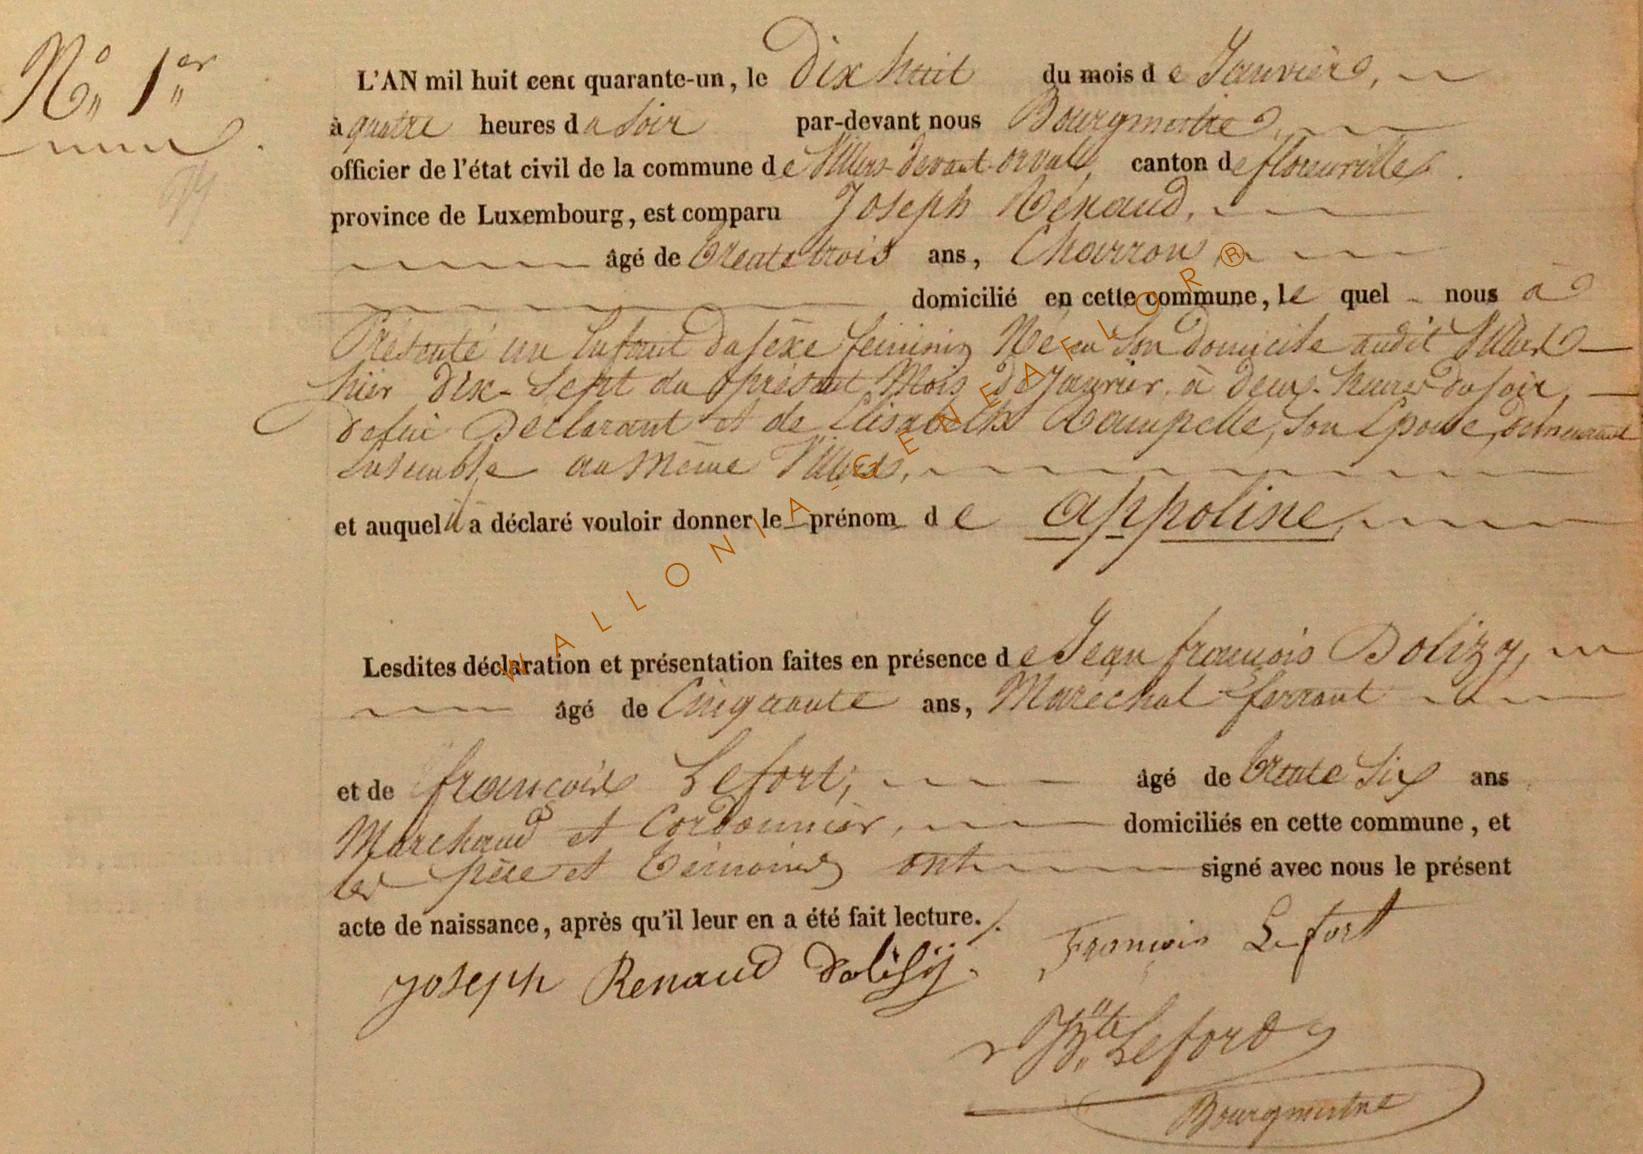 N° 1er
L'AN mil huit cent quarante-un, le Dix huit du mois de Janvier,
à quatre heures du Soir par-devant nous Bourgmestre
officier de l'état civil de la commune de Villers-devant-orval, canton de florenville
province de Luxembourg, est comparu Joseph Rénaud,
âgé de trente trois ans, Charron
domicilié en cette commune, le quel nous à
Présenté un Enfant du sèxe feminin Né en Son domicile audit Villers
hier dix-Sept du présent Mois de Janvier, à deux heures du soir,
de lui Déclarant et de Elisabeth Rampelle, Son Epouse, demeurant
Ensemble au même Villers,
et auquel il a déclaré vouloir donner le prénom de appoline
Lesdites déclaration et présentation faites en présence de Jean françois Dolizy,
âgé de Cinquante ans, Maréchal ferrant
et de françois Lefort, âgé de trente Six ans
Marchand et Cordonnier, domiciliés en cette commune, et
les père et témoins ont signé avec nous le présent
acte de naissance, après qu'il leur en a été fait lecture.
Joseph Renaud Dolisÿ François Lefort
JBte Lefort
Bourgmestre
WALLONIA-GENEAFLOR®